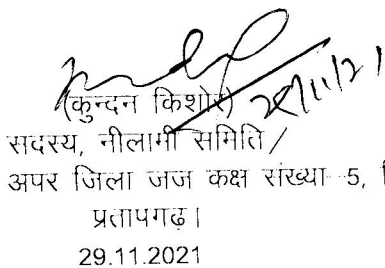 29/11/21
(कुन्दन किशोर)
सदस्य, नीलामी समिति/
अपर जिला जज कक्ष संख्या 5,
प्रतापगढ़।
29.11.2021